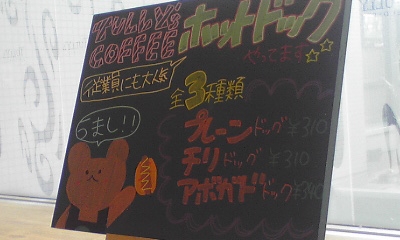 TULLY'S
COFFEE
ホットドック
やってます
従業員にも大人気
全3種類
うまし!!
プレーンドッグ ¥310
チリドッグ ¥310
アボカドドック ¥340